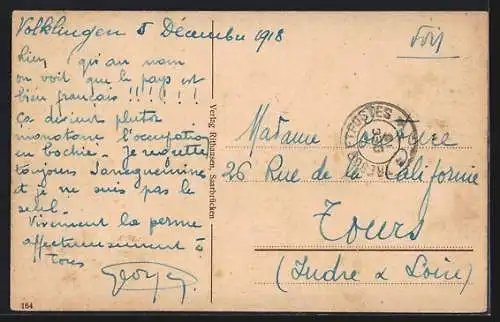 Volklingen 5 Décembre 1918
Rien qu'au nom
on voit que le pays est
bien français !!!!!!
Ça devient plutôt
monotone l'occupation
en bochie. Je regrette
toujours Sarreguemine
et je ne suis pas le
seul.
Vivement la perme
affectueusement à
tous
Georges
164
Verlag Rithausen, Saarbrücken
Madame
26 Rue de la Californie
Tours
(Indre & Loire)
POSTES